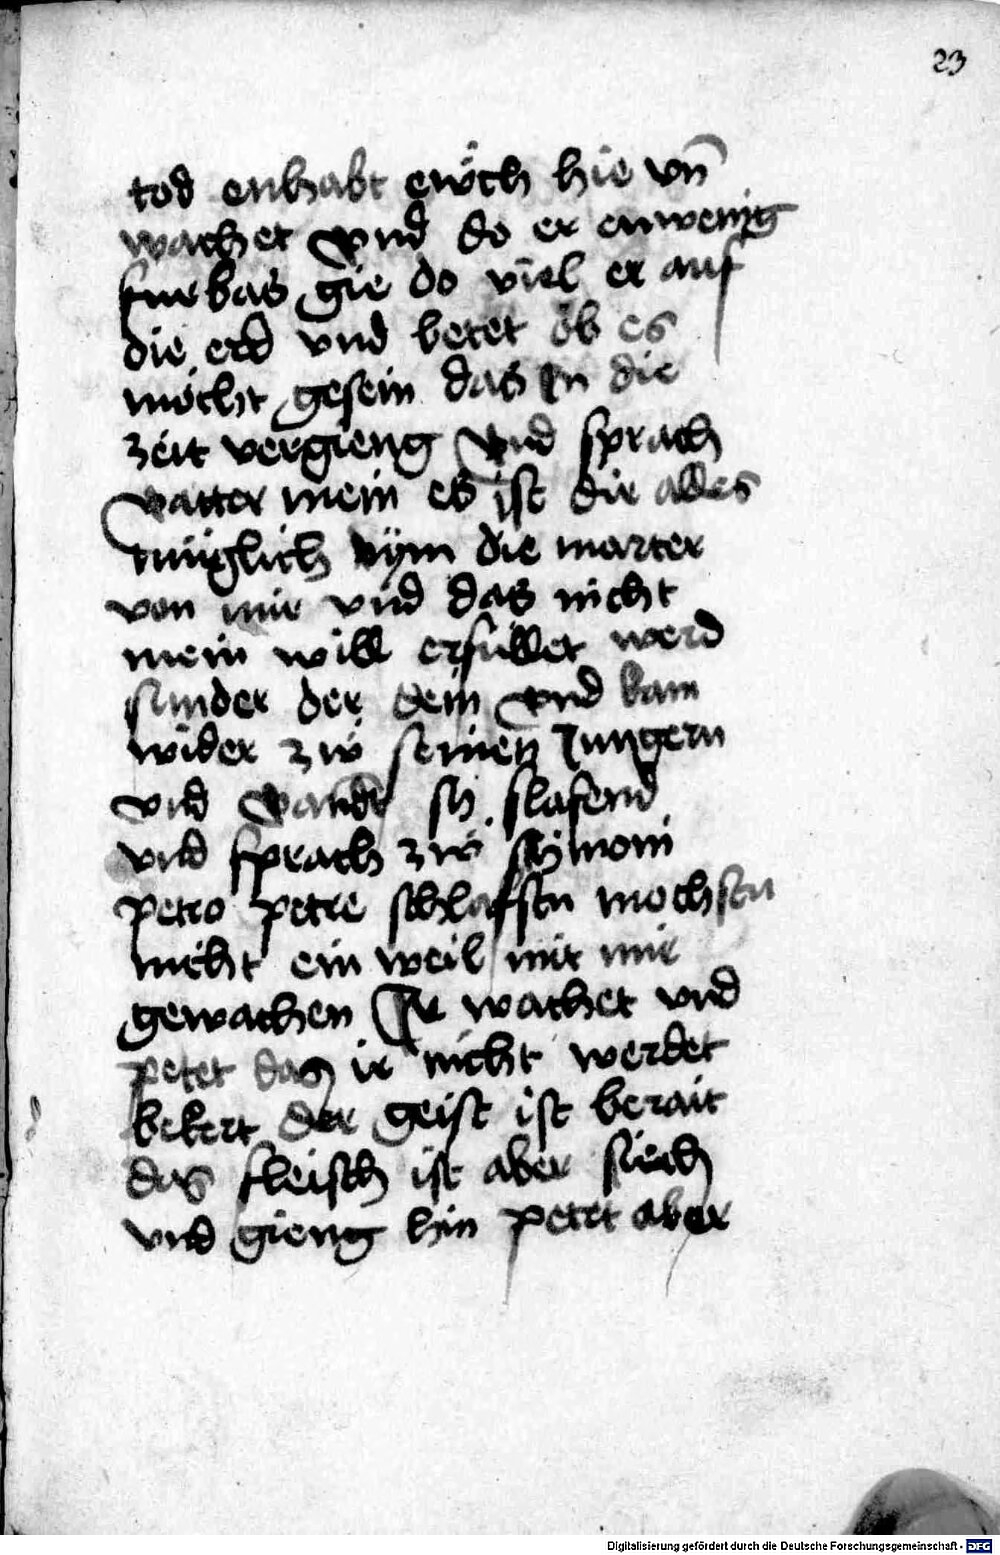 23
tod enhabt ewch hie vn̄
wachet vnd do er enwenig
furbas gie do viel er auf
die erd vnd betet ob es
mocht gesein das in die
zeit vergieng vnd sprach
vatter mein es ist dir alles
muglich nym die marter
von mir vnd das nicht
mein will erfullet werd
sunder der dein vnd kam
wider zw seinen Jungern
vnd vandt sy slafend
vnd sprach zw symoni
petro petre schlafstu mochstu
nicht ein weil mit mir
gewachen Ir wachet vnd
petet das ir nicht werdet
bekert der geist ist berait
das fleisch ist aber siech
vnd gieng hin petet aber
Digitalisierung gefördert durch die Deutsche Forschungsgemeinschaft - DFG